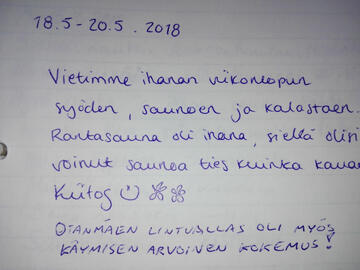 18.5-20.5.2018
Vietimme ihanan viikonlopun
syöden, saunoen ja kalastaen.
Rantasauna oli ihana, siellä olisi
voinut saunoa ties kuinka kauan
Kiitos
OTANMÄEN LINTUALLAS OLI MYÖS
KÄYMISEN ARVOINEN KOKEMUS!